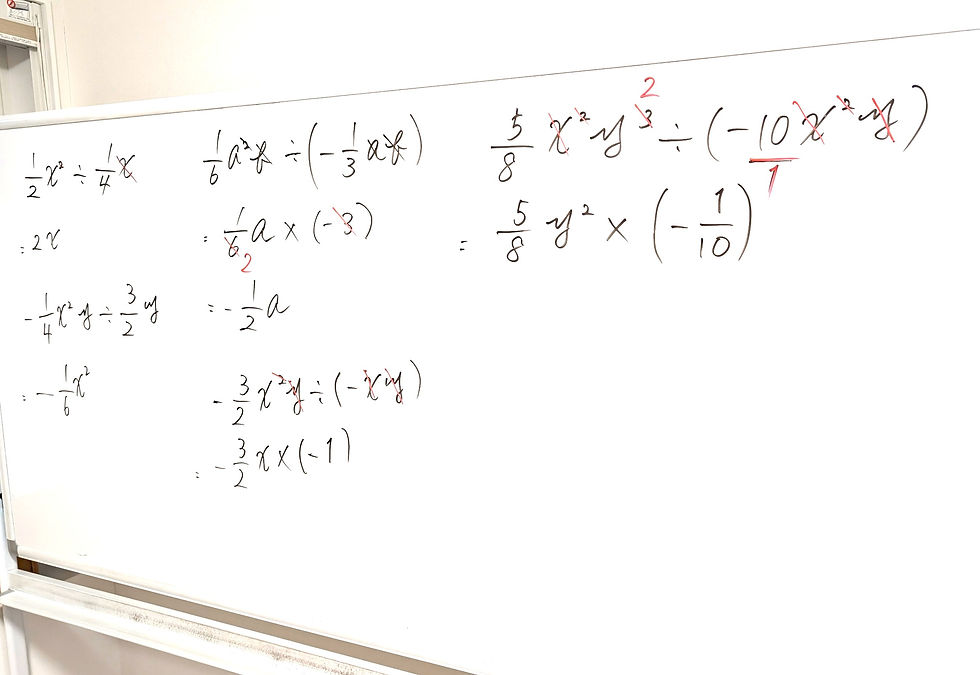 1/2 x² ÷ 1/4 x
= 2x
- 1/4 x² y ÷ 3/2 y
= - 1/6 x²
1/6 a² b ÷ (- 1/3 a b)
= 1/6 a × (-3)
2
= - 1/2 a
- 3/2 x² y ÷ (- x y)
= - 3/2 x × (-1)
2
5/8 x² y³ ÷ (-10 x² y)
1
= 5/8 y² × (- 1/10)